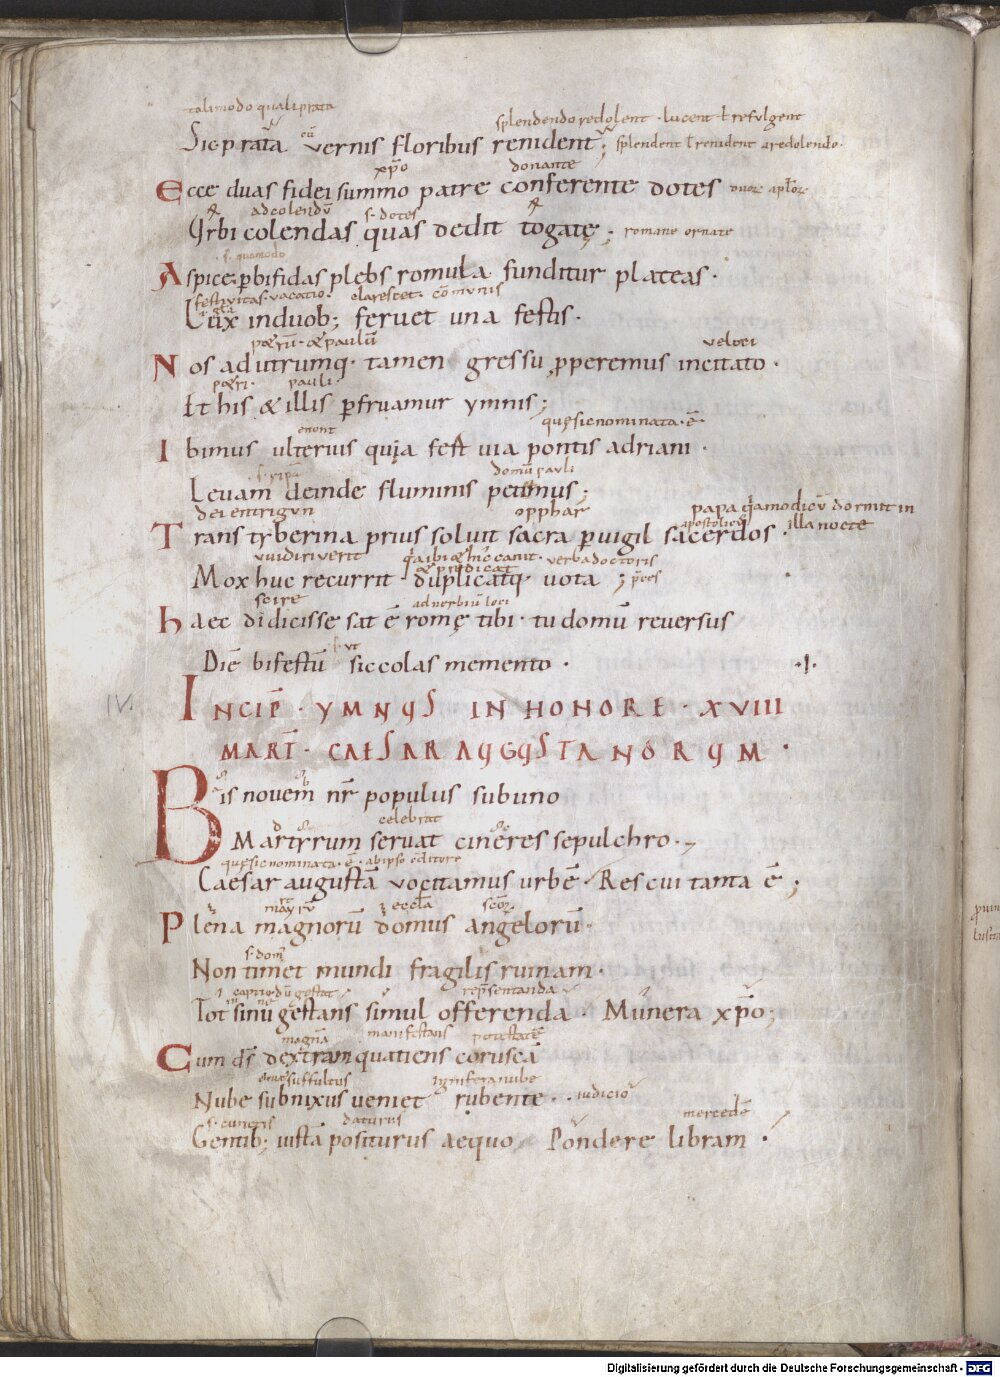 tali modo quali prata
splendendo redolent · lucent ł refulgent
Sic prata vernis floribus renident; splendent ł renident a redolendo·
xpo donante
Ecce duas fidei summo patre conferente dotes
ad colendū s· dotes
Vrbi colendas quas dedit togatę; romane ornate
s. quomodo
Aspice p bifidas plebs romula funditur plateas·
festivitas· vacatio· clarescet· cōmunis
Lux in duob; feruet una festis·
petrū· & paulū veloci
Nos ad utrumq· tamen gressu pperemus incitato·
petri· pauli·
Et his & illis pfruamur ymnis;
quę sic nominata· ē
Ibimus ulterius quia fert uia pontis adriani·
s· ripā domū pauli
Leuam deinde fluminis petimus;
papa in
Trans tyberina prius soluit sacra puigil sacerdos· illa nocte
verba doctoris
Mox huc recurrit· duplicatq· uota;
scire adverbiū loci
Haec didicisse sat ē romę tibi· tu domū reversus
Diē bifestū sic colas memento·
INCIP· YMNVS IN HONORE· XVIII
MART· CAESARAVGVSTANORVM·
Bis novem nr populus sub uno
celebrat
Martyrum servat cineres sepulchro·
quę sic nominata· ē· ab ipso editore
Caesaraugustā vocitamus urbē· Res cui tanta ē;
Plena magnorū domus angelorū·
Non timet mundi fragilis ruinam·
Tot sinu gestans simul offerenda· Munera xpo;
magna manifestans potestatē
Cum ds dextram quatiens coruscā
suffultus ignifera nube
Nube subnixus ueniet rubente· iudicio
s· cunctis daturus mercedē
Gentib; iustā positurus aequo Pondere libram·